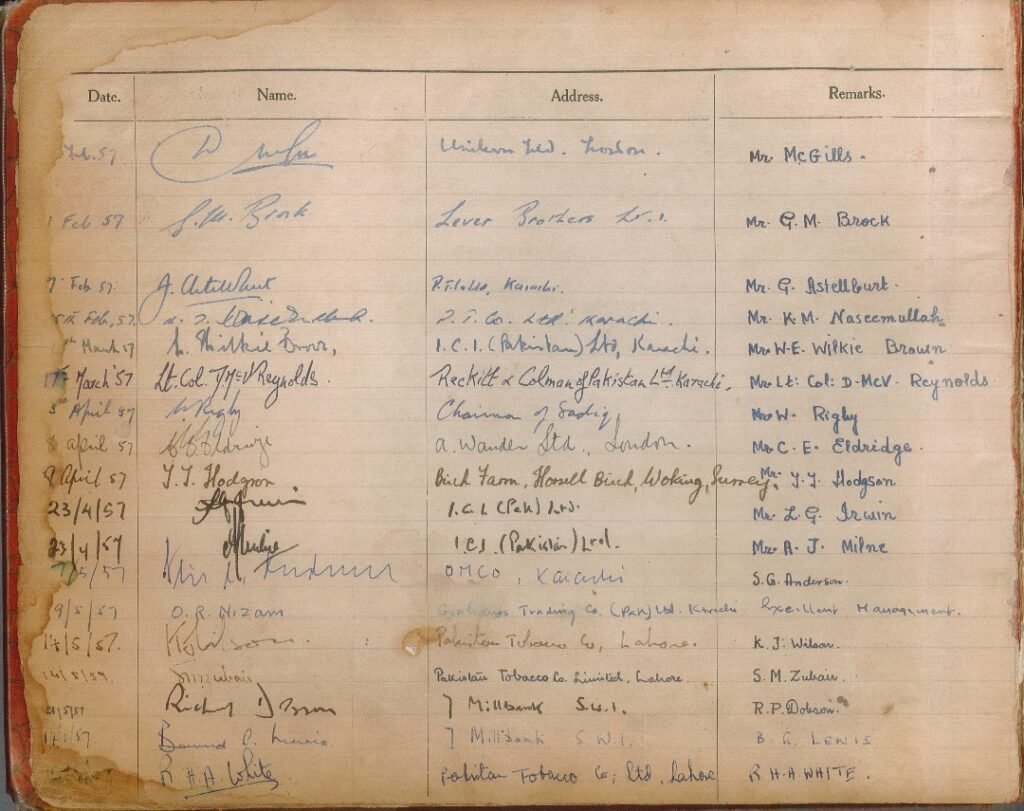 Date. Name. Address. Remarks.
Feb. 57 London. Mr. McGills.
1 Feb 57 G.M. Brock Lever Brothers Mr. G. M. Brock
7 Feb 57. Karachi. Mr. G. Astellburt.
Feb, 57 Ltd. Karachi. Mr. K.M. Naseemullah.
March 57 Wilkie Brown, I.C.I. (Pakistan) Ltd, Karachi. Mr W.E. Wilkie Brown
March '57 Lt. Col. McV Reynolds. Reckitt & Colman of Pakistan Ltd Karachi. Mr. Lt: Col: D. McV. Reynolds
5 April 57 W Rigby Chairman of Mr W. Rigby
8 April 57 C.E. Eldridge A. Wander Ltd, London. Mr. C. E. Eldridge.
9 April 57 T.T. Hodgson Birch Farm, Horsell Birch, Woking, Surrey. Mr. T. T. Hodgson
23/4/57 I.C.I. (Pak) Ltd. Mr. L. G. Irwin
23/4/57 AJMilne I.C.I. (Pakistan) Ltd. Mr. A. J. Milne
7/5/57 OMCO, Karachi S.G. Anderson.
9/5/57 O. R. Nizam Grahams Trading Co. (Pak) Ltd. Karachi Excellent Management.
14/5/57. Pakistan Tobacco Co, Lahore. K. J. Wilson.
14/5/57. SMZubair Pakistan Tobacco Co. Limited, Lahore. S. M. Zubair.
21/5/57 Richard P Dobson 7 Millbank S.W.1. R.P. Dobson.
57 Lewis 7 Millbank S.W.1. LEWIS
R. H. A. White Pakistan Tobacco Co; Ltd, Lahore R H A WHITE.